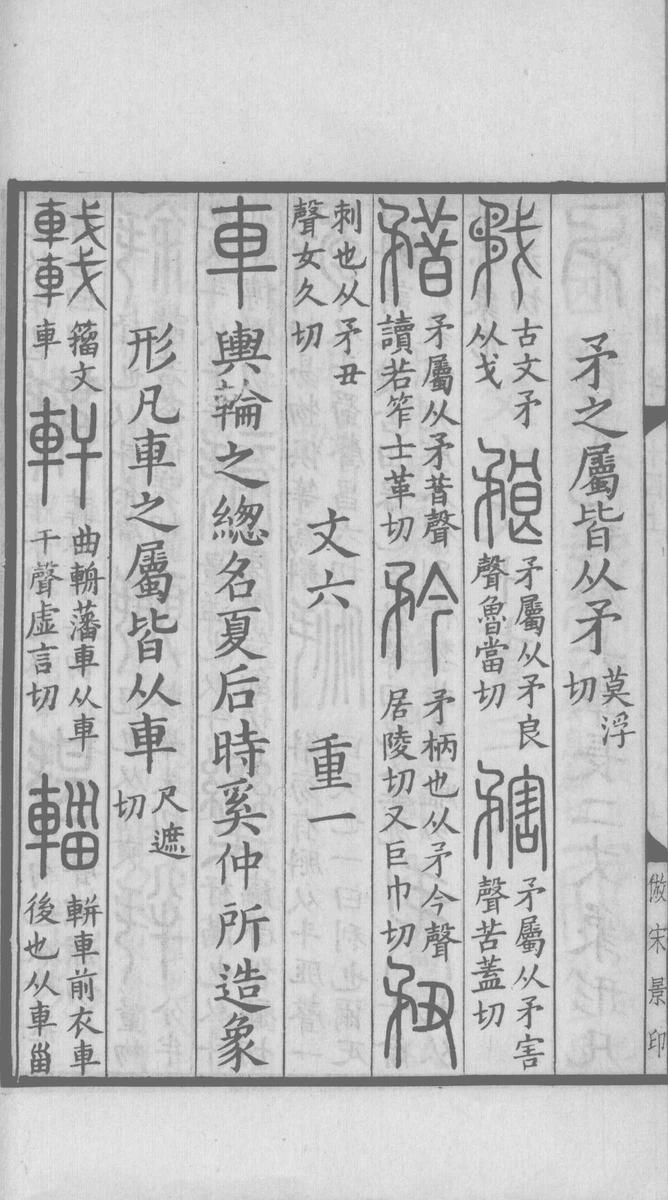 矛之屬皆从矛莫浮切
𢦧古文矛从戈䤚矛屬从矛良聲魯當切𥎆矛屬从矛害聲苦蓋切
矠矛屬从矛昔聲讀若笮士革切矜矛柄也从矛今聲居陵切又巨巾切䂇
刺也从矛丑聲女久切 文六 重一
車輿輪之緫名夏后時奚仲所造象
形凡車之屬皆从車尺遮切
𨏖籒文車軒曲輈藩車从車干聲虛言切輜輧車前衣車後也从車甾
倣宋景印